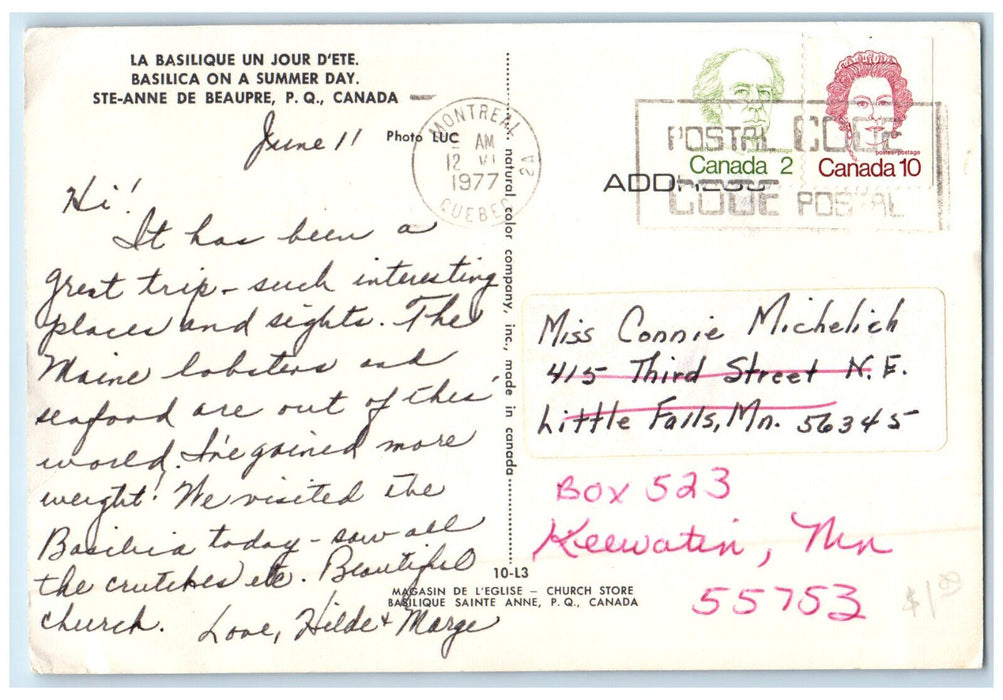 LA BASILIQUE UN JOUR D'ETE.
BASILICA ON A SUMMER DAY.
STE-ANNE DE BEAUPRE, P. Q., CANADA
Photo LUC
June 11
Hi!
It has been a
great trip - such interesting
places and sights. The
Maine lobsters and
seafood are out of this
world. I've gained more
weight! We visited the
Basilica today - saw all
the crutches etc. Beautiful
church. Love, Hilde & Marge
10-L3
MAGASIN DE L'EGLISE – CHURCH STORE
BASILIQUE SAINTE ANNE, P. Q., CANADA
natural color company, inc., made in canada
MONTREAL
AM
12 VI
1977
2A
QUEBEC
postes-postage
Canada 2
postes-postage
Canada 10
POSTAL CODE
CODE POSTAL
ADDRESS
Miss Connie Michelich
415 Third Street N.E.
Little Falls, Mn. 56345
Box 523
Keewatin, Mn
55753
$1.00